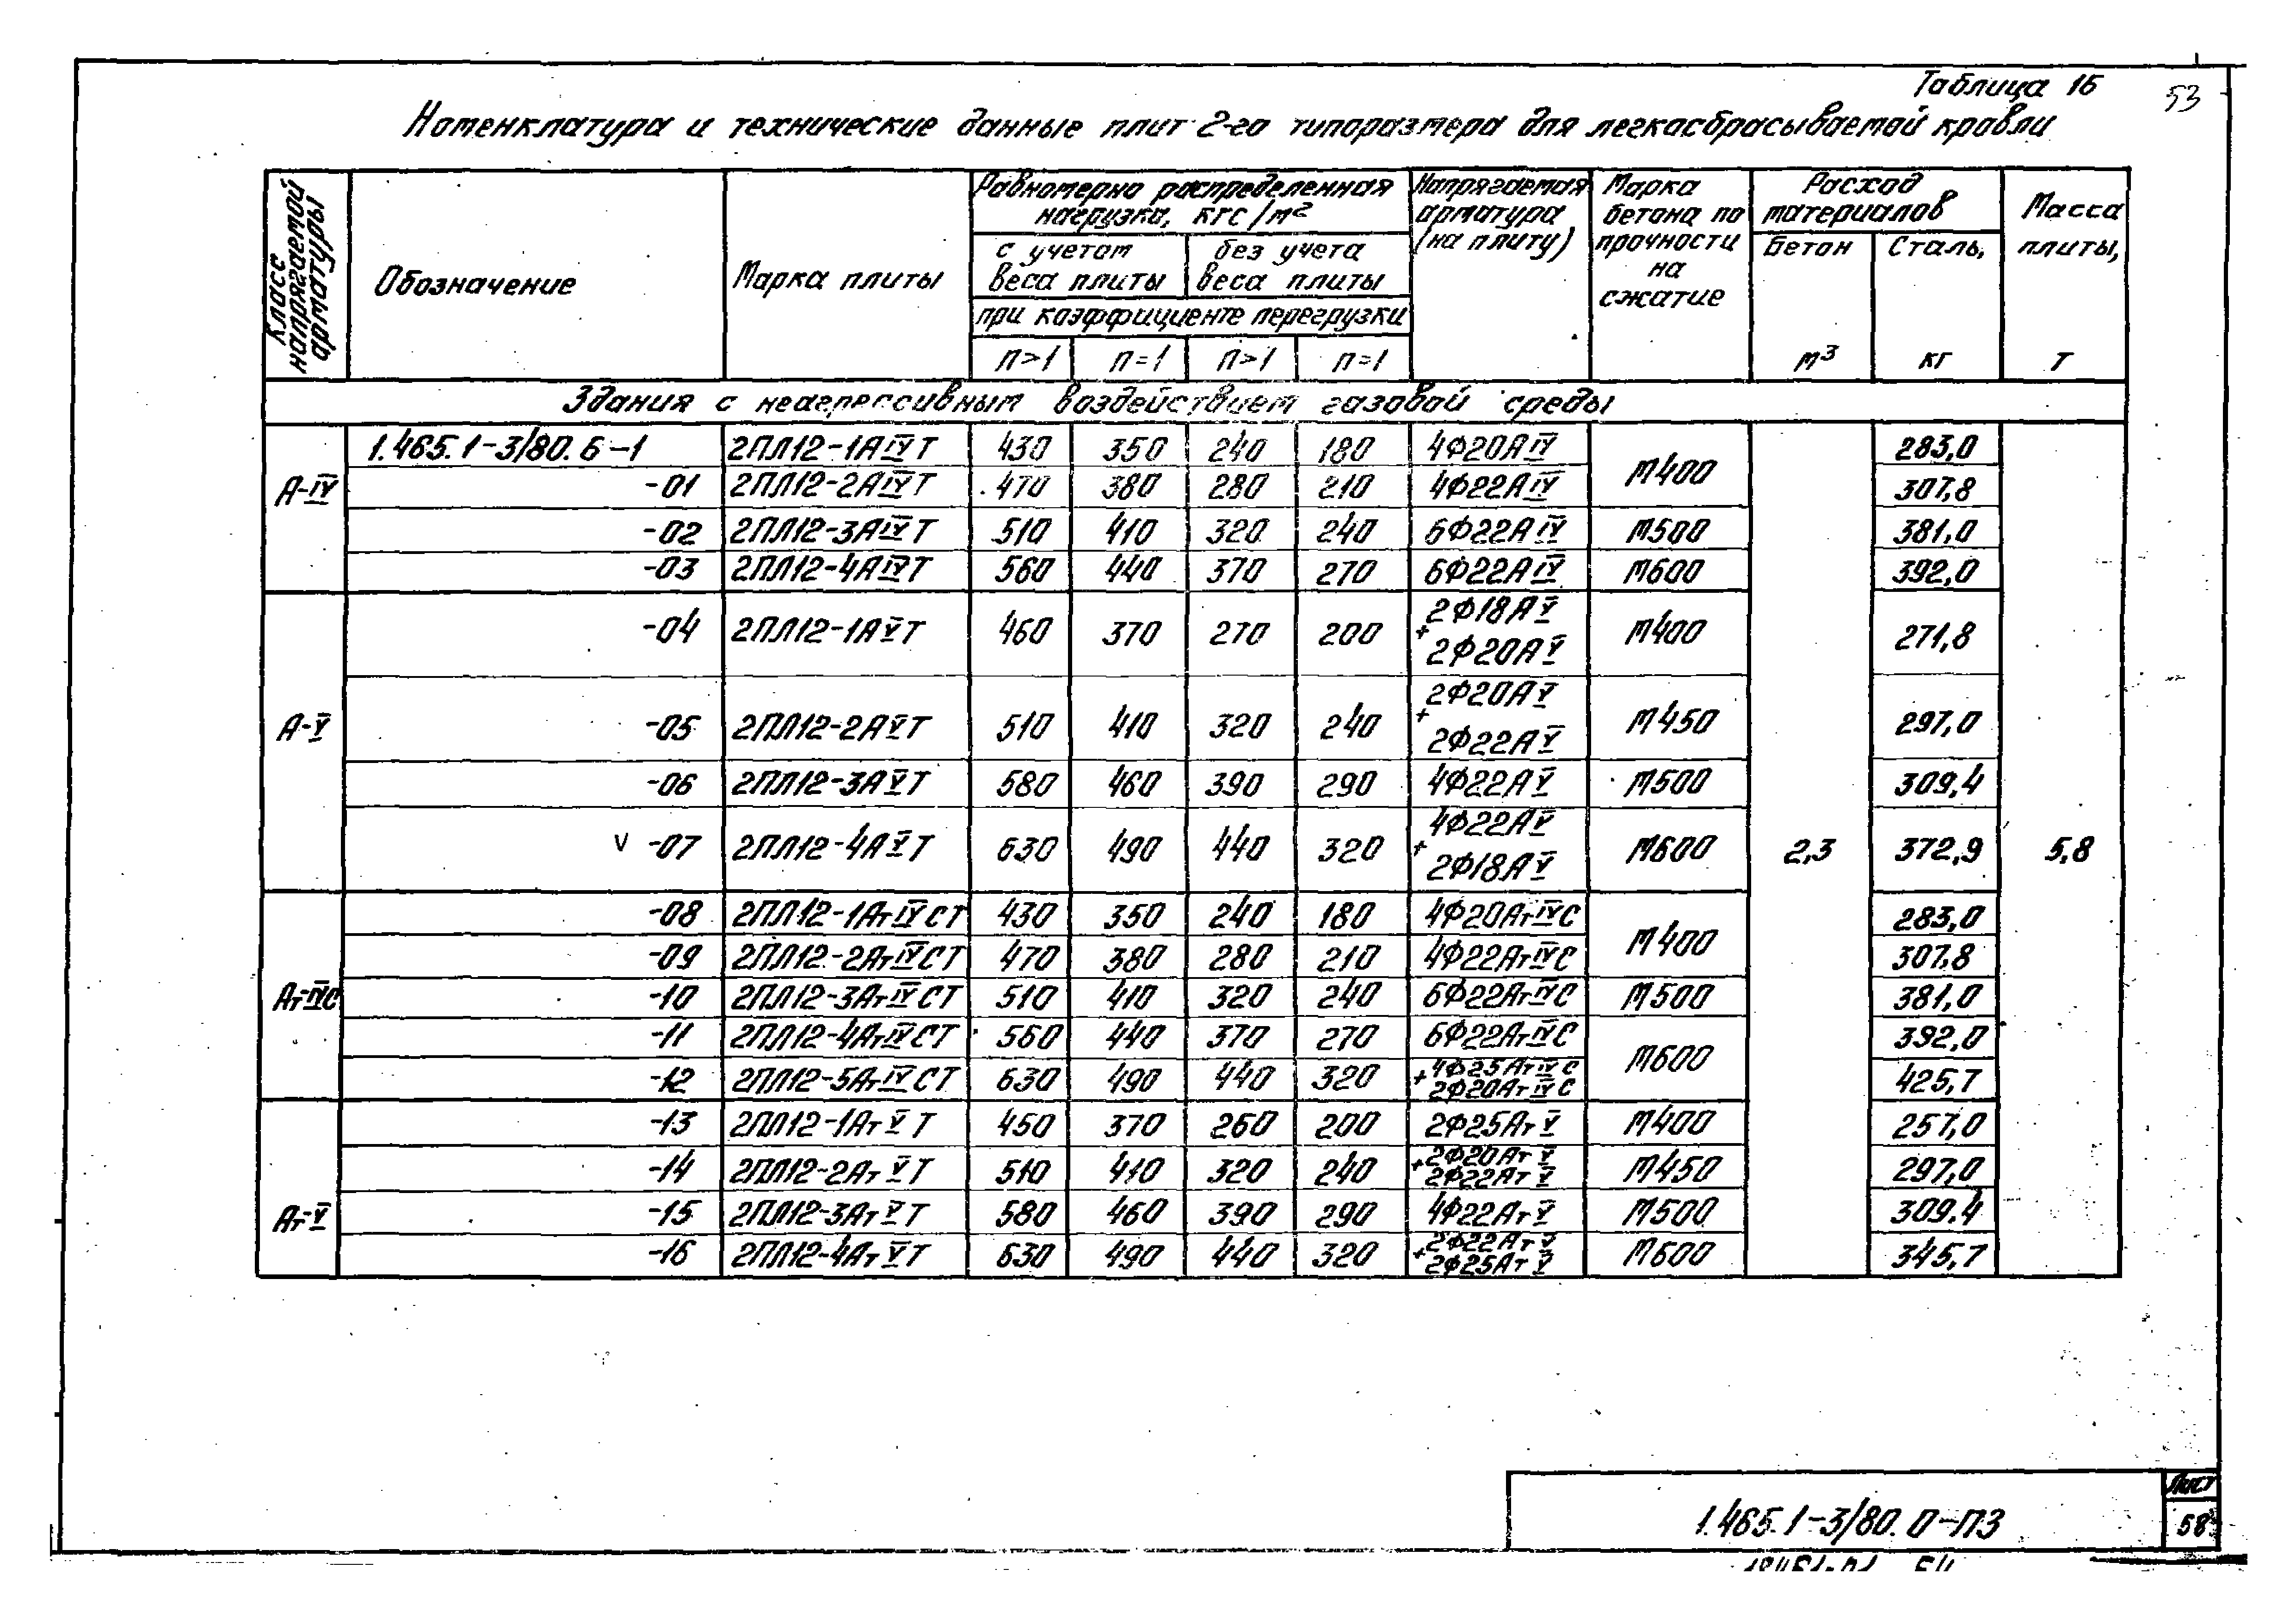 Таблица 16
53
Номенклатура и технические данные плит 2-го типоразмера для легкосбрасываемой кровли
Класс напрягаемой арматуры
Обозначение
Марка плиты
Равномерно распределенная нагрузка, кгс/м²
с учетом веса плиты
без учета веса плиты
при коэффициенте перегрузки
n>1 n=1 n>1 n=1
Напрягаемая арматура (на плиту)
Марка бетона по прочности на сжатие
Расход материалов
Бетон м³
Сталь, кг
Масса плиты, т
Здания с неагрессивным воздействием газовой среды
А-IV
1.465.1-3/80.6-1 2ПЛ12-1АIVТ 430 350 240 180 4Ф20АIV М400 283,0
-01 2ПЛ12-2АIVТ 470 380 280 210 4Ф22АIV 307,8
-02 2ПЛ12-3АIVТ 510 410 320 240 6Ф22АIV М500 381,0
-03 2ПЛ12-4АIVТ 560 440 370 270 6Ф22АIV М600 392,0
А-V
-04 2ПЛ12-1АVТ 460 370 270 200 2Ф18АV + 2Ф20АV М400 271,8
-05 2ПЛ12-2АVТ 510 410 320 240 2Ф20АV + 2Ф22АV М450 297,0
-06 2ПЛ12-3АVТ 580 460 390 290 4Ф22АV М500 309,4
v -07 2ПЛ12-4АVТ 630 490 440 320 4Ф22АV + 2Ф18АV М600 2,3 372,9 5,8
Ат-IVС
-08 2ПЛ12-1АтIVСТ 430 350 240 180 4Ф20АтIVС М400 283,0
-09 2ПЛ12-2АтIVСТ 470 380 280 210 4Ф22АтIVС 307,8
-10 2ПЛ12-3АтIVСТ 510 410 320 240 6Ф22АтIVС М500 381,0
-11 2ПЛ12-4АтIVСТ 560 440 370 270 6Ф22АтIVС М600 392,0
-12 2ПЛ12-5АтIVСТ 630 490 440 320 4Ф25АтIVС + 2Ф20АтIVС 425,7
Ат-V
-13 2ПЛ12-1АтVТ 450 370 260 200 2Ф25АтV М400 257,0
-14 2ПЛ12-2АтVТ 510 410 320 240 2Ф20АтV + 2Ф22АтV М450 297,0
-15 2ПЛ12-3АтVТ 580 460 390 290 4Ф22АтV М500 309.4
-16 2ПЛ12-4АтVТ 630 490 440 320 2Ф22АтV + 2Ф25АтV М600 345,7
1.465.1-3/80.0-ПЗ
Лист
58